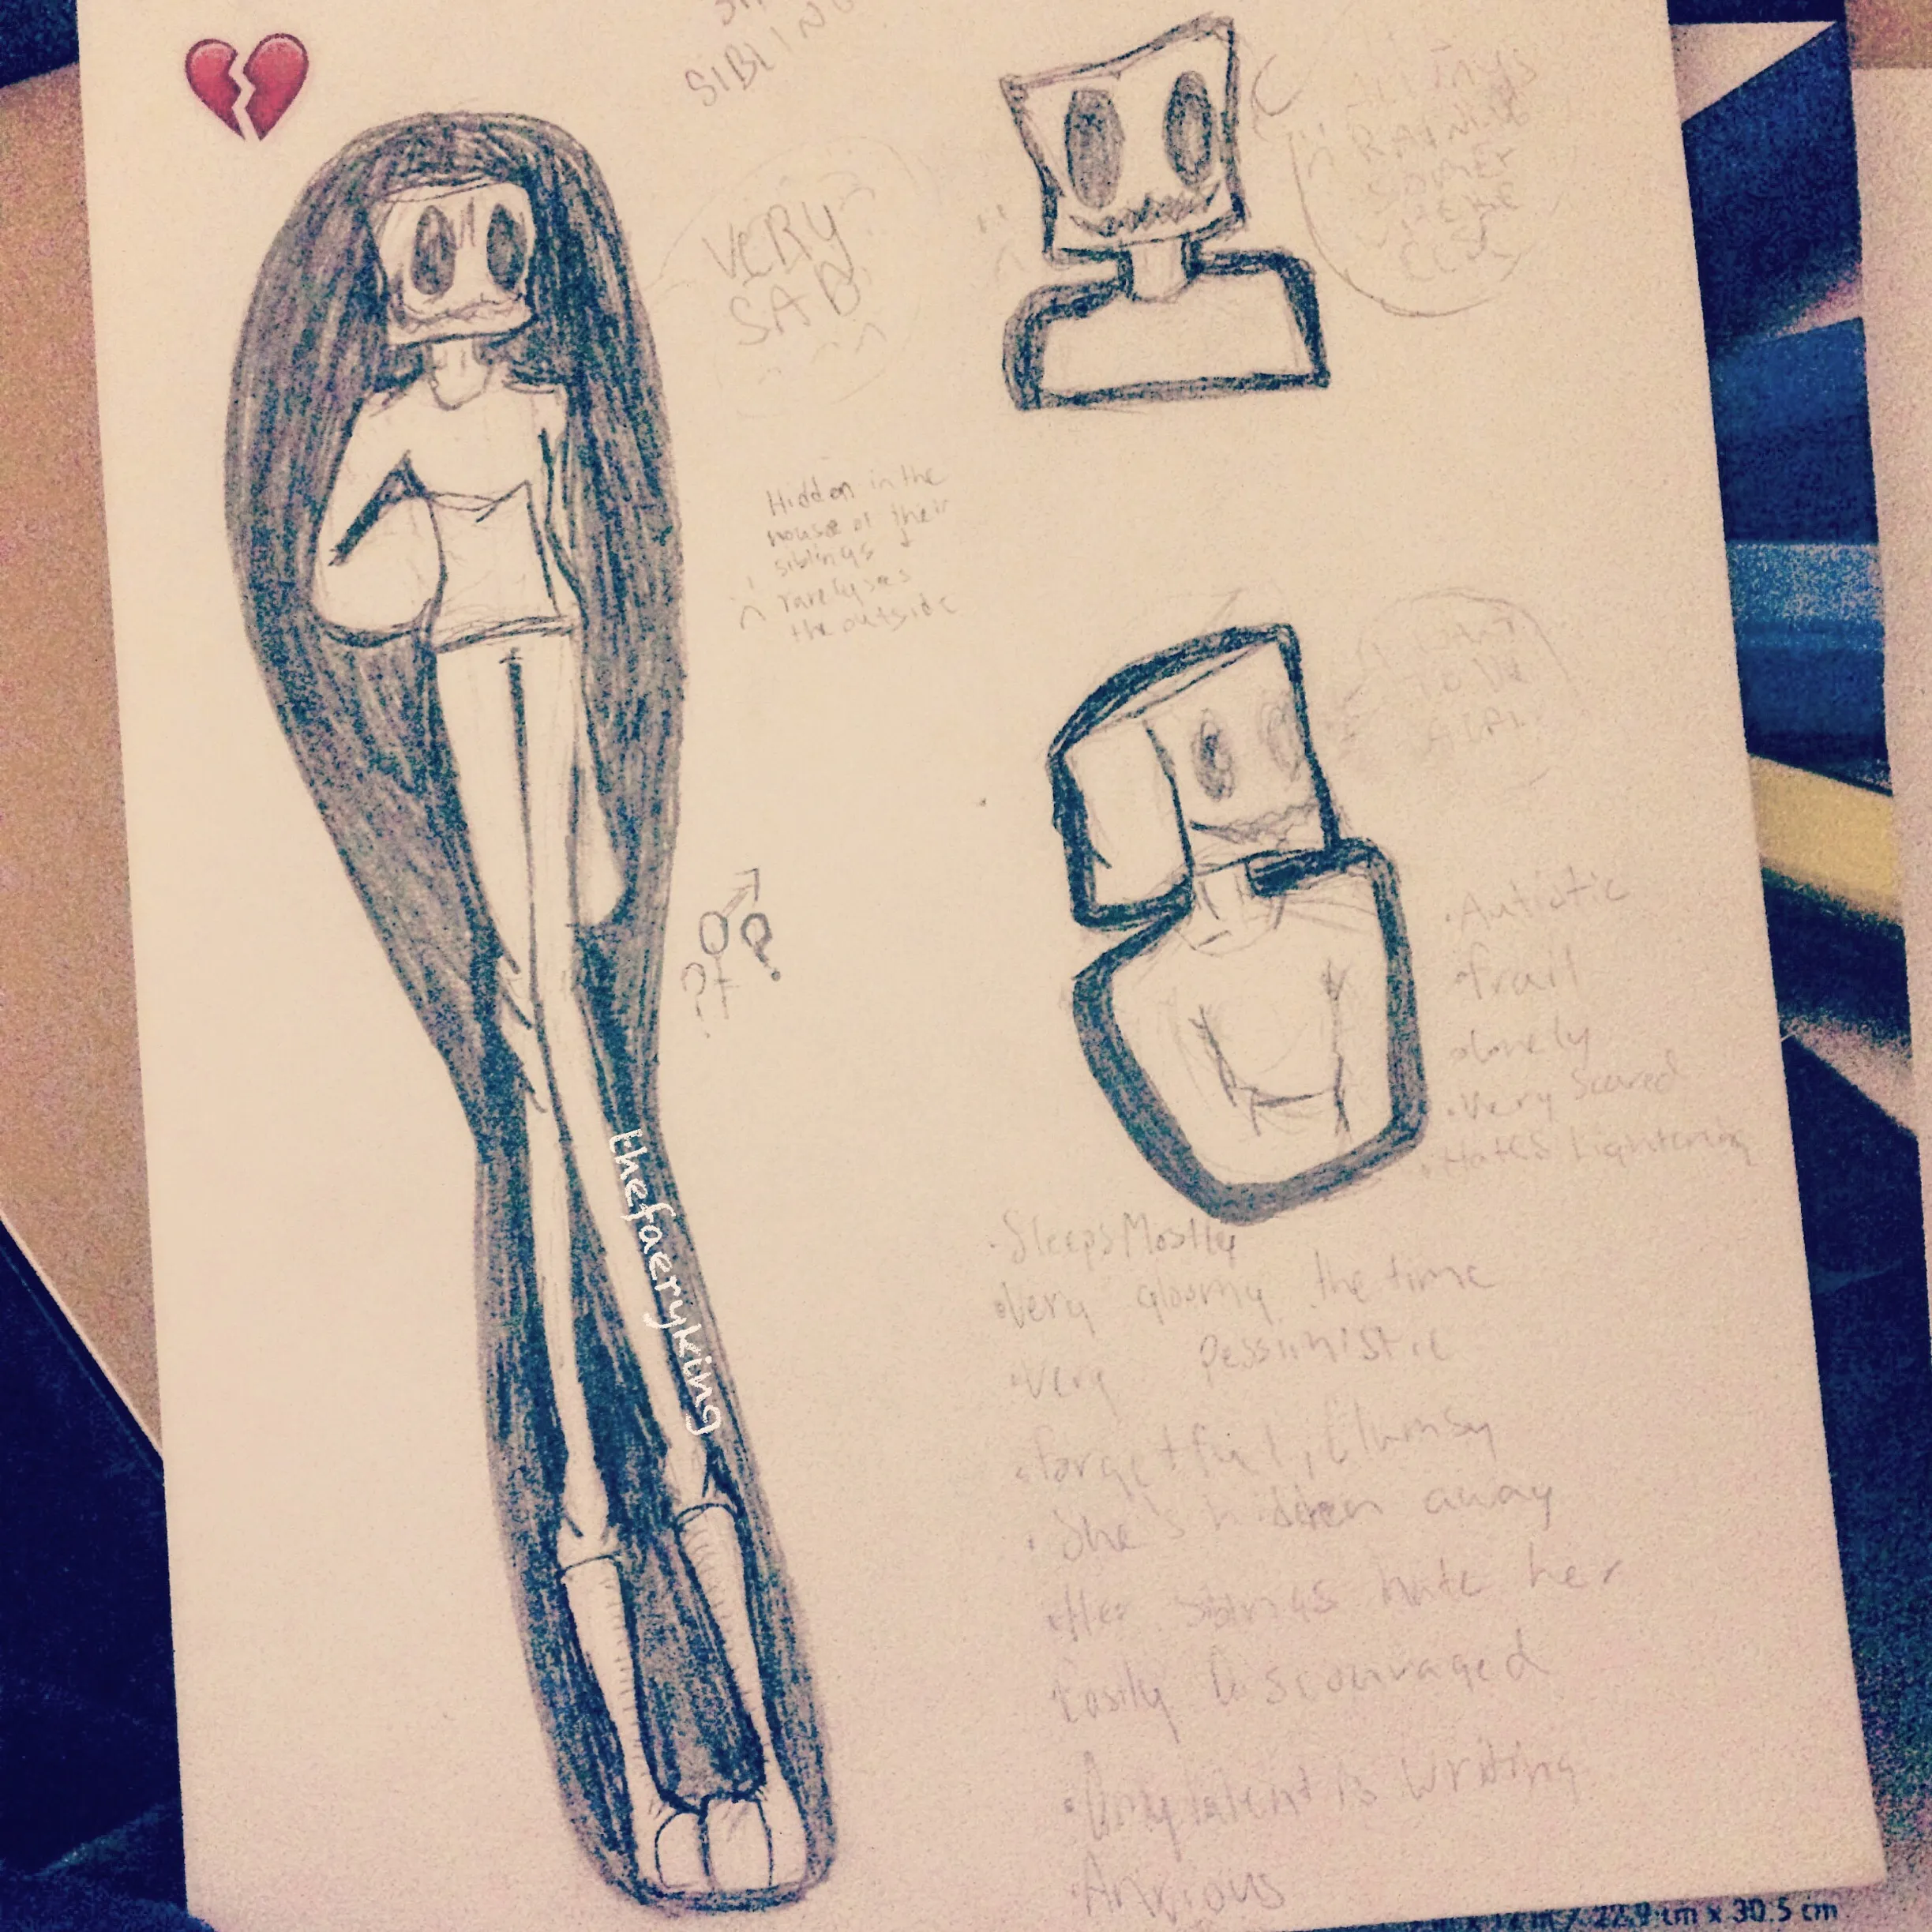 SIBLING
VERY
SAD
Hidden in the
house of their
siblings
rarely sees
the outside
? ?
RAINING
thefaeryking
• Autistic
• frail
• lonely
• Very Scared
• Hates Lightening
• Sleeps Mostly
• Very gloomy the time
• Very pessimistic
• forgetful, Clumsy
• She's hidden away
• Her siblings hate her
Easily Discouraged
• Only talent is writing
• Anxious
22.9 cm x 30.5 cm